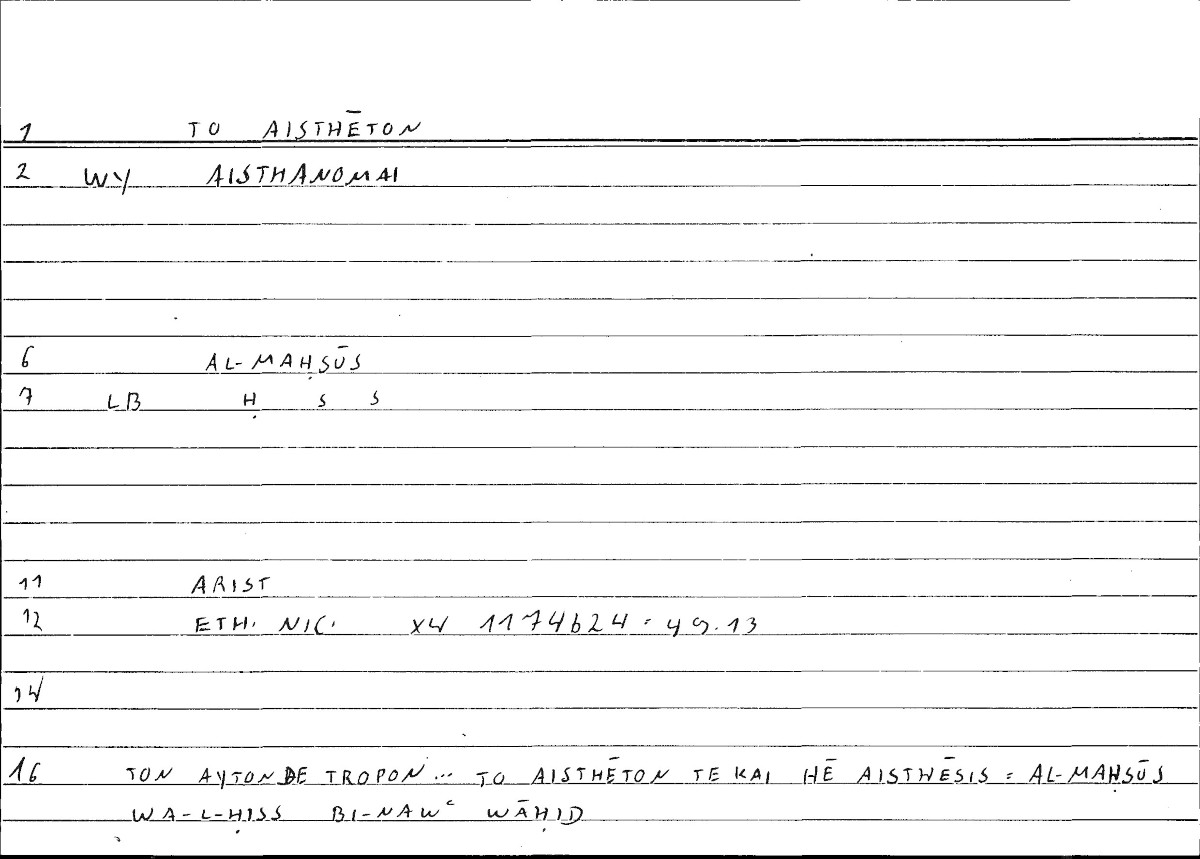 1 TO AISTHĒTON
2 WY AISTHANOMAI
6 AL-MAḤSŪS
7 LB Ḥ S S
11 ARIST
12 ETH. NIC. X4 1174b24 = 49.13
14
16 TON AYTON DE TROPON... TO AISTHĒTON TE KAI HĒ AISTHĒSIS = AL-MAḤSŪS
WA-L-ḤISS BI-NAWᶜ WĀḤID